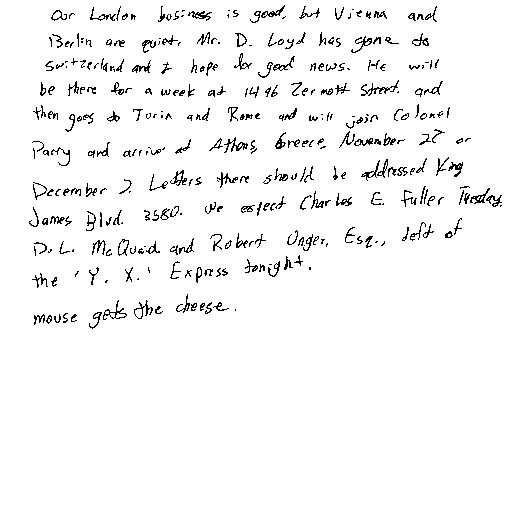 Our London business is good, but Vienna and
Berlin are quiet. Mr. D. Loyd has gone to
Switzerland and I hope for good news. He will
be there for a week at 1496 Zermott Street. and
then goes to Turin and Rome and will join Colonel
Parry and arrive at Athens, Greece, November 27 or
December 2. Letters there should be addressed King
James Blvd. 3580. We expect Charles E. Fuller Tuesday.
D. L. McQuaid and Robert Unger, Esq., left of
the 'Y. X.' Express tonight.
mouse gets the cheese.